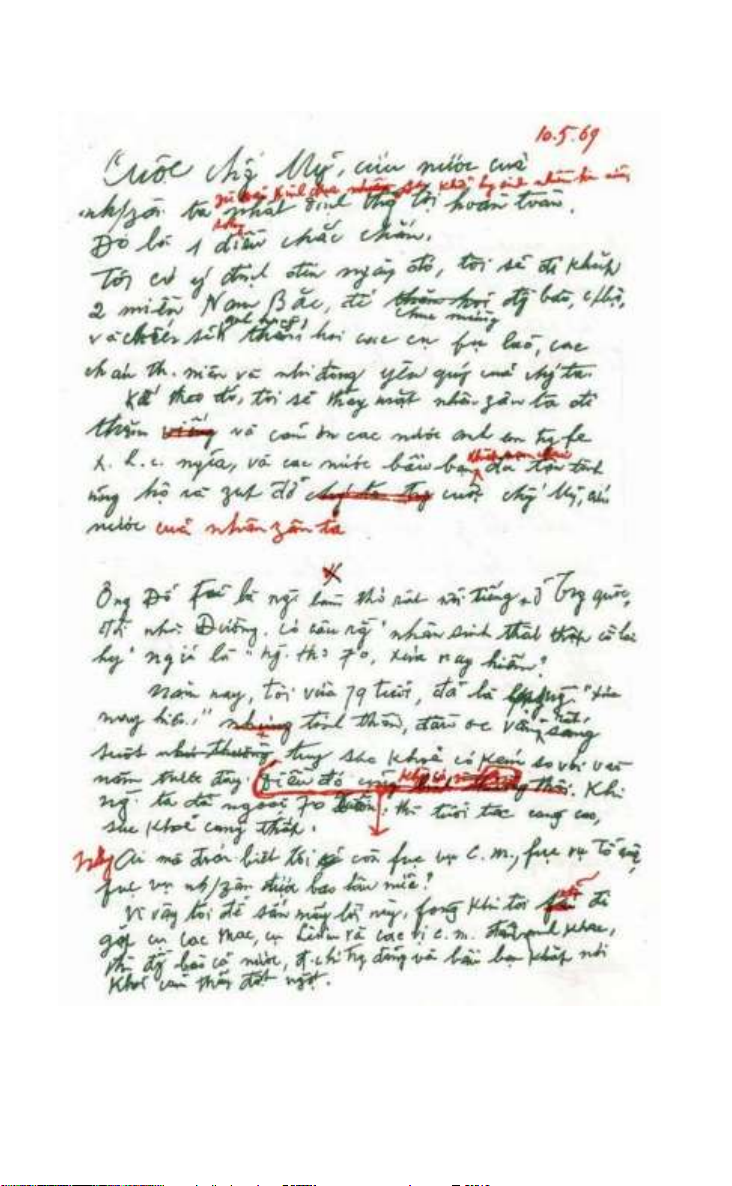 10.5.69
Cuộc chố́g Mỹ, cứu nước của
dù phải kinh qua nhiều hy sinh
nh/zân ta nhất định thắg lợi hoàn toàn.
Đó là 1 điều chắc chắn.
Tôi có ý định đến ngày đó, tôi sẽ đi khắp
2 miền Nam Bắc, để thăm hỏi đg bào,
chúc mừng
và chiến sĩ thăm hỏi các cụ fụ lão, các
cháu th. niên và nhi đồng yêu quý của chg ta.
Kế theo đó, tôi sẽ thay mặt nhân zân ta đi
thăm viếng và cám ơn các nước anh em tg fe
x. h. c. nghĩa, và các nước bầu bạn đã tận tình
ủng hộ và zúp đỡ cuộc chố́g Mỹ, cứu
nước của nhân zân ta
Ông Đỗ Fủ là ngí làm thơ rất nổi tiếng ở Tg quốc,
đời nhà Đường. Có câu rằg "nhân sinh thất thập cổ lai
hy" nghĩa là "ng. thọ 70, xưa nay hiếm".
Năm nay, tôi vừa 79 tuổi, đã là "xưa
nay hiếm" nhưng tinh thần, đầu óc vẫn rất sáng
suốt như thường, tuy sức khoẻ có kém so với vài
năm trước đây. Điều đó cũg Khi
ng. ta đã ngoài 70 xuân, thì tuổi tác càng cao,
sức khoẻ càng thấp.
Ai mà đoán biết tôi sẽ còn fục vụ c.m., fục vụ Tổ quốc,
fục vụ nh/zân được bao lâu nữa?
Vì vậy tôi để sẵn mấy lời này, fòng khi tôi fải đi
gặp cụ Các Mác, cụ Lênin và các vị c.m. đàn anh khác,
thì đg bào cả nước, đ.chí tg đảng và bầu bạn khắp nơi
khỏi cảm thấy đột ngột.